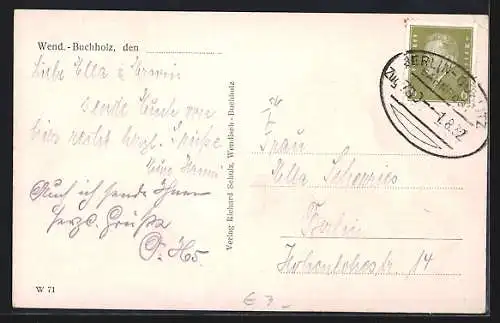 Wend.-Buchholz, den
Liebe Ella u. Erwin
Sende Euch von
hier recht herzl. Grüße
Eure Hanni
Auch ich sende Ihnen
herzl. Grüße
Verlag Richard Schulz, Wendisch-Buchholz
BERLIN-
ZUG
1.8.32
Frau
Ella
Berlin
Hohenlohestr. 14
W 71